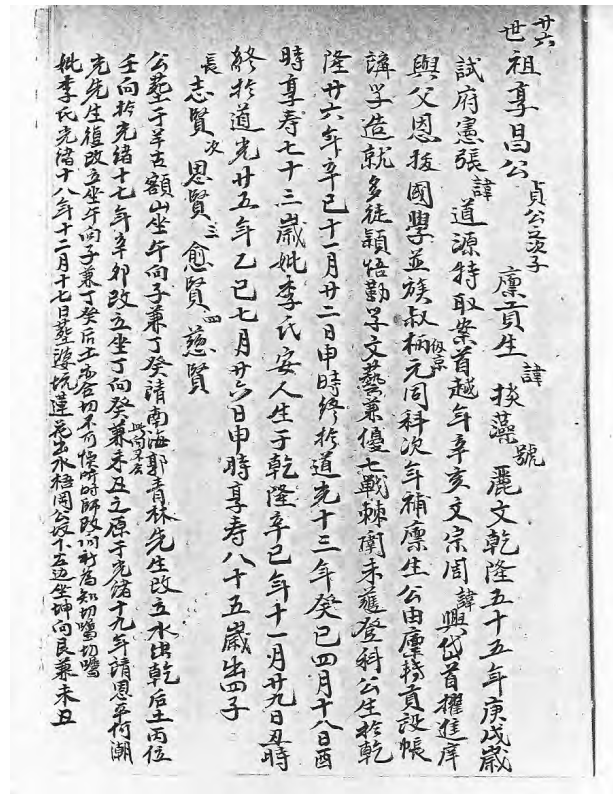 廿六世祖享昌公 貞公之次子 廩貢生 諱 掞藻 號 麗文乾隆五十五年庚戌歲
試府憲張 諱 道源特取案首越年辛亥文宗周 諱 興岱首擢進庠
與父恩拔國學並族叔柄元同科次年補廩生公由廩轉貢設帳
講学造就多徒穎悟勤学文藝兼優七戰棘闈未薦登科公生於乾
隆廿六年辛巳十一月廿二日申時終於道光十三年癸巳四月十八日酉
時享寿七十三歲妣李氏安人生于乾隆辛巳年十一月廿九日丑時
終於道光廿五年乙巳七月廿六日申時享寿八十五歲出四子
長 志賢 次 恩賢 三 愈賢 四 慈賢
公塟于羊古額山坐午向子兼丁癸請南海郭青林先生改立水出乾后土丙位
壬向於光緒十七年辛卯改立坐丁向癸兼未丑之原于光緒十九年請恩平何潮
光先生復改立坐午向子兼丁癸后土合切不可悞听时師改向折為知切囑切囑
妣李氏光緒十八年十二月十七日塟婆坑蓮花出水梧岡公坟下左边坐坤向艮兼未丑